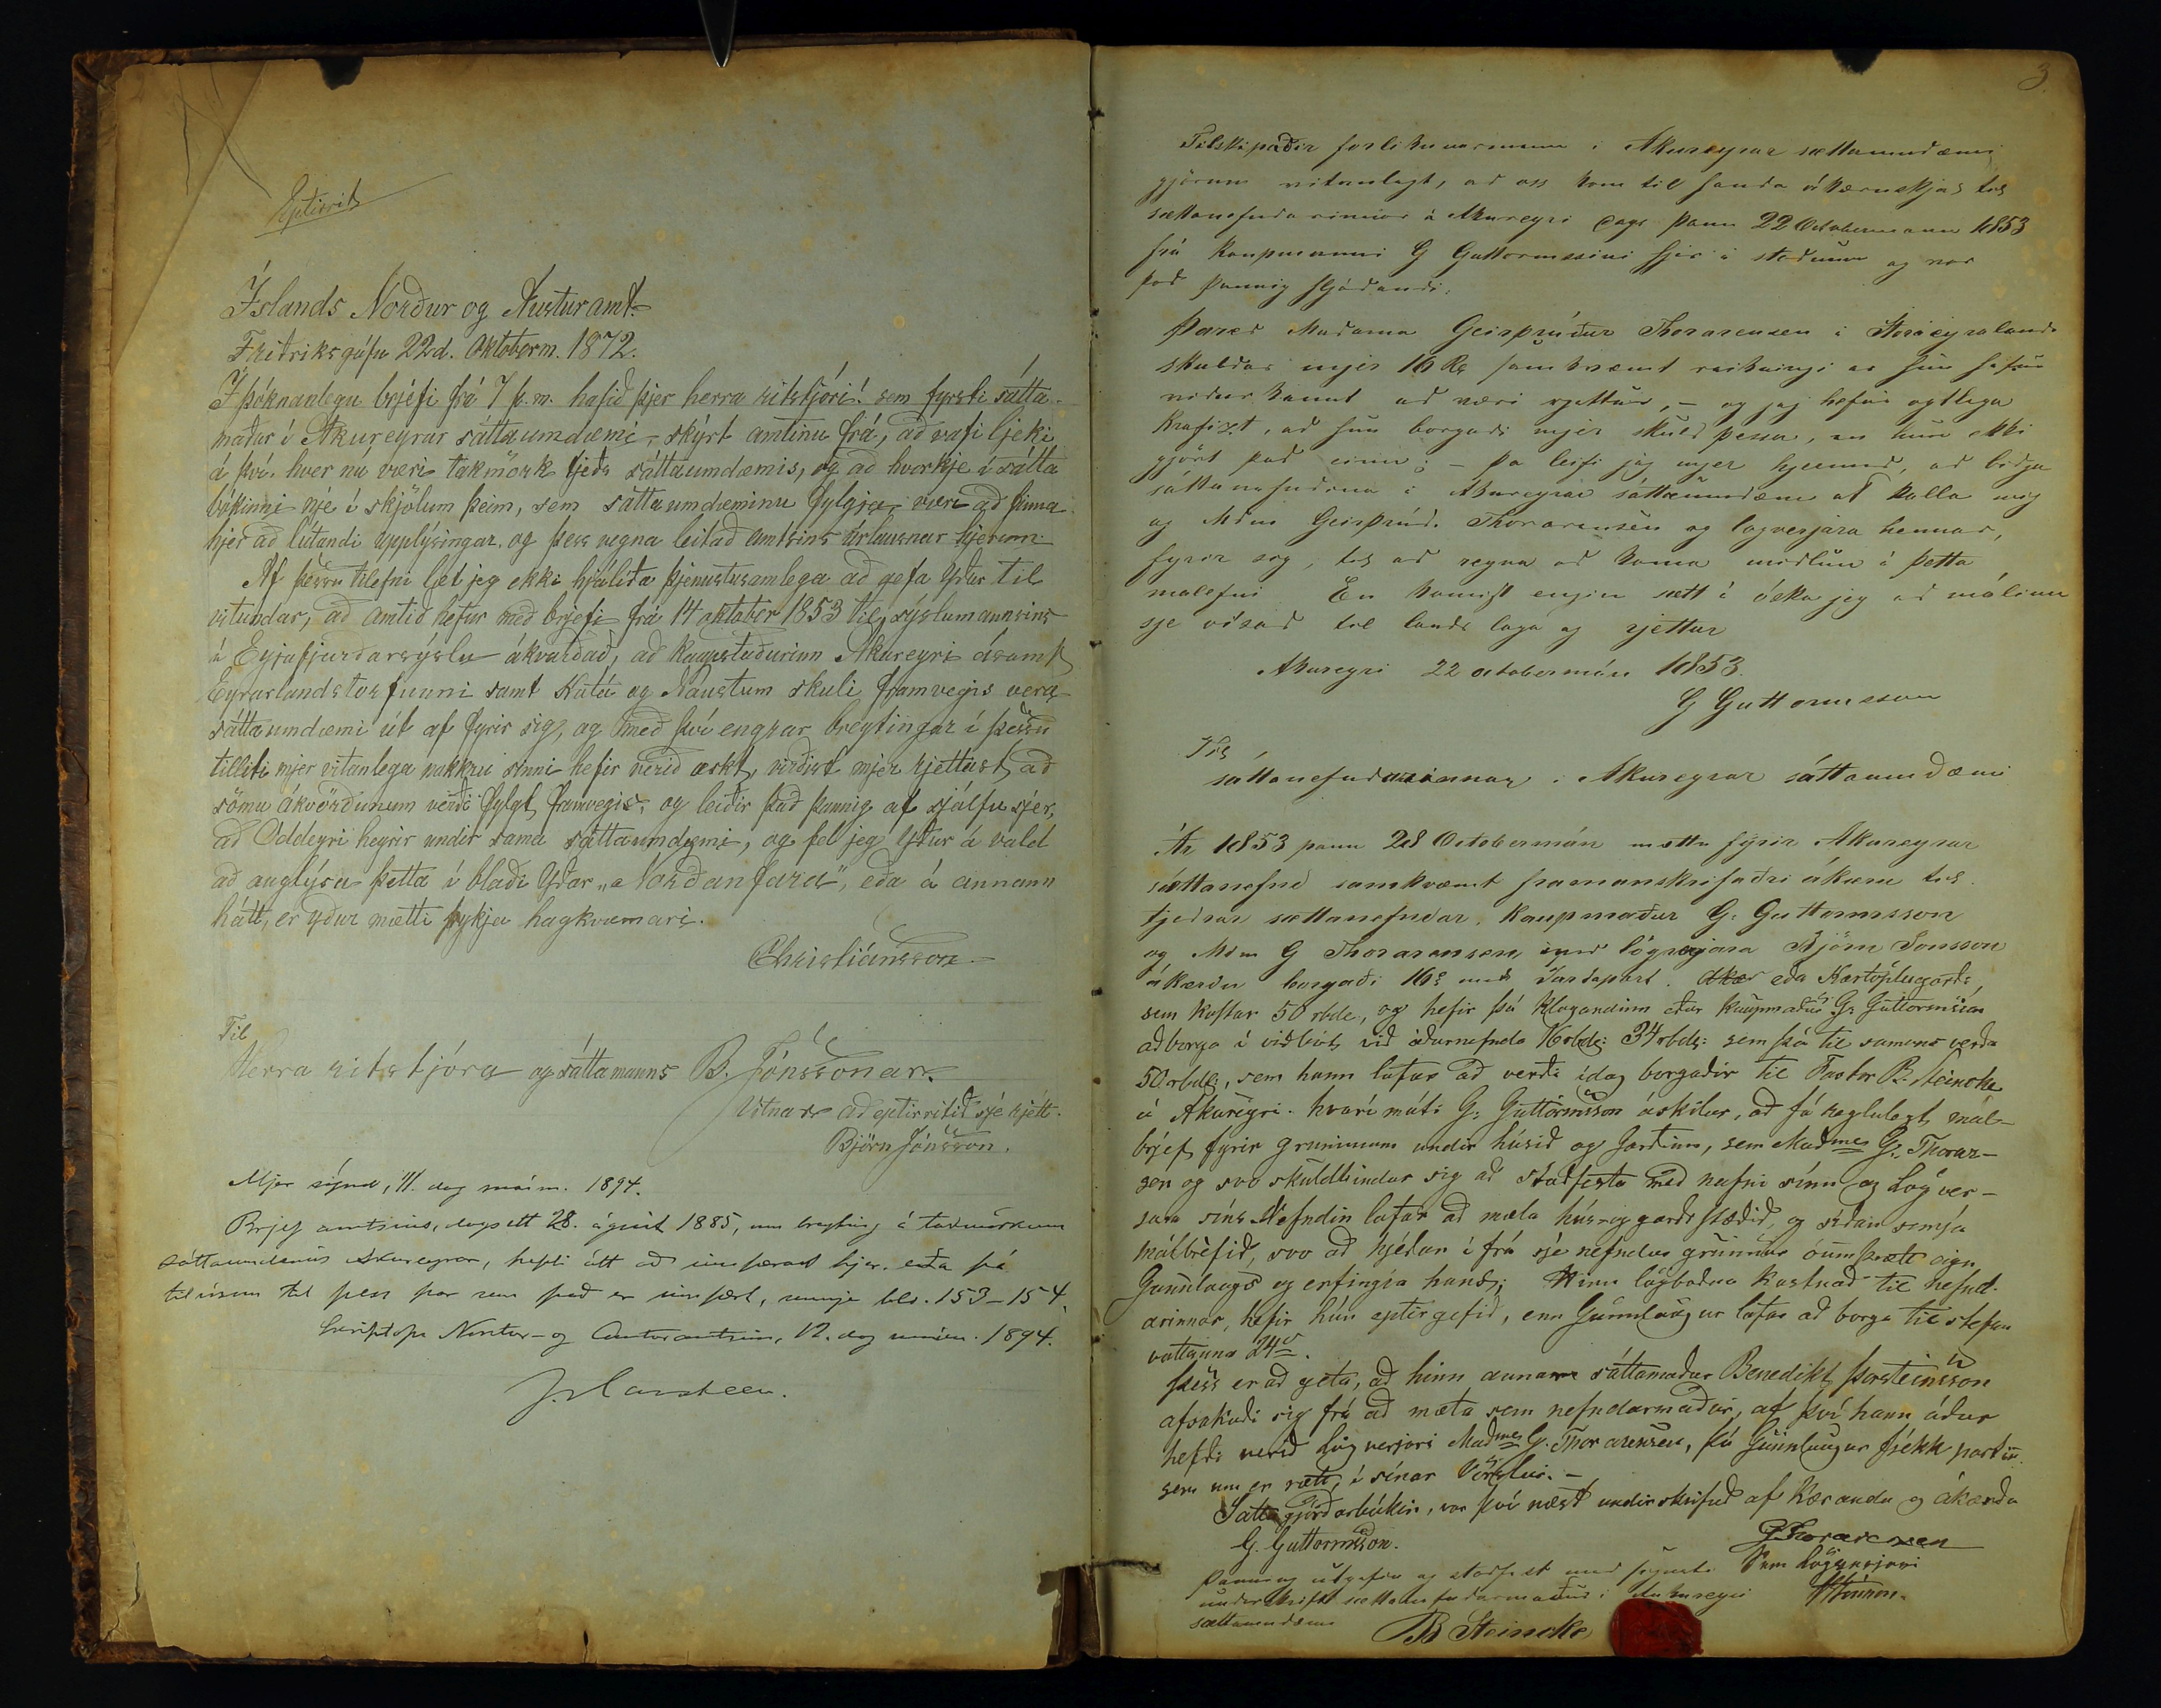 Eptirrit
Íslands Norður og Austuramt
Friðriksgáfu 22d. Oktoberm. 1872.
Í þóknanlegu brjefi frá 7 þ.m. hafið þjer herra ritstjóri! sem fyrsti sátta-
maður í Akureyrar sáttaumdæmi, skýrt amtinu frá, að vafi ljeki
á því, hver nú væri takmörk tjeðs sáttaumdæmis, og að hvorkje í sátta
bókinni nje í skjölum þeim, sem sáttaumdæminu fylgja, væri að finna
hjer að lútandi upplýsingar, og þess vegna leitað amtsins úrlausnar hjerum.
Af þessu tilefni læt jeg ekki hjálíða þjenustusamlega að gefa Yður til
vitundar, að amtið hefur með brjefi frá 14 oktober 1853 til sýslumannsins
í Eyjafjarðarsýslu ákvarðað, að kaupstaðurinn Akureyri ásamt
Eyrarlandstorfunni samt Kotá og Naustum skuli framvegis vera
sáttaumdæmi út af fyrir sig, og með því engrar breytingar í þessu
tilliti mjer vitanlega nokkru sinni hefir verið æskt, virðist mjer rjettast að
sömu ákvörðunum verði fylgt framvegis, og leiðir það þannig af sjálfu sjer,
að Oddeyri heyrir undir sama sáttaumdæmi, og fel jeg Yður á vald
að auglýsa þetta í blaði Yðar „Norðanfara", eða á annann
hátt, er yður mætti þykja hagkvæmari.
Christiánsson
Til
Herra ritstjóra og sáttamanns B. Jónssonar.
Vitnar að eptirritið sje rjett.
Björn Jónsson.
Mjer sýnd, 11. dag maím. 1894.
Brjef amtsins, dagsett 28. ágúst 1885, um breyting á takmörkum
sáttaumdæmis Akureyrar, hefði átt að innfærast hjer, eða þá
tilvísun til þess þar sem það er innfært, bls. 153–154.
Skrifstofu Norður- og Austuramtsins, 12. dag maím. 1894.
J. Havsteen.
3.
Tilskipaðir forlikunarmenn í Akureyrar sættaumdæmi
gjörum vitanlegt, að oss kom til handa ákæruskjal til
sættanefndarinnar á Akureyri dags þann 22 Octobermann 1853
frá kaupmanni G Guttormssini hjer í staðnum og var
það þannig hljóðandi.
Þared Madama Geirþrúður Thorarensen á Stóraeyralandi
skuldar mjer 16 Rs samkvæmt reikningi er hún hefur
viðurkennt að væri rjettur, – og jeg hefur optlega
krafist, að hún borgaði mjer skuld þessa, en hún ekki
gjört það enn; – þa leifi jeg mjer hjermeð, að biðja
sáttanefndina í Akureyrar sáttaumdæmi at kalla mig
og Mdm Geirþrúd. Thorarensen og lagverjara hennar,
fyrir sig, til að reyna að koma miðlun á þetta
malefni En komist engin sætt á óska jeg að málinu
sje vísað til lands laga og rjettar
Akureyri 22 octobermán 1853.
G Guttormsson
Til
sáttanefndarinnar í Akureyrar sáttaumdæmi
Ár 1853 þann 28 Octobermán mættu fyrir Akureyrar
sættanefnd samkvæmt framanskrifaðri ákæru til
tjeðrar sættanefndar, Kaupmaður G. Guttormsson
og Mdm G Thorarensen, með lögverjara Björn Jonsson
ákærða borgaði 16 með Jardapart. eða Kartöplugarði,
sem kostar 50 rbdr, og hefir þá Klagandinn eður kaupmaður G. Guttormsson
að borga í viðbót við áðurnefnda 16 rbdr: 34 rbdr: sem þá til samans verða
50 rbdr:, sem hann lofar að verði ídag borgaðir til Factor B. Steincke
á Akureyri. hvarímóti G: Guttormsson áskilur, að fá reglulegt mál-
brjef fyrir grunninum undir húsið og Jorðinn, sem Madme G. Thorar-
sen og svo skuldbindur sig að staðfesta með nafni sínu og Lögver-
jara síns Nefndin lofar að mæla hús- og garðsstæðið, og síðan semja
málbréfið, svo að hjéðan í frá sje nefndur grunnur óumþrætt eign
Gunnlaugs og erfingja hans; Hinn lögboðna kostnað til nefnd-
arinnar, hefir hún eptirgefið, enn Gunnlaugur lofar að borga til stefnu
vottanna 24s.
Þess er að geta, að hinn annar sáttamaður Benedikt Þorsteinsson
afsakaði sig frá að mæta sem nefndarmaður, af því hann áður
hefði verið Lögverjari Madme G. Thorarensen, þá Gunnlaugur fjekk partinn
sem um er rætt, í sínar Vörslur. –
Sáttagjörðarbókin, var því næst undirskrifuð af kæranda og ákærða
G. Guttormsson.
G Thorarensen
Sem Lögverjari
BJónsson.
Þannig útgefin og staðfest með signeti
undirskrift sættanefndarmanns í Akureyri
sættaumdæmi
B Steincke